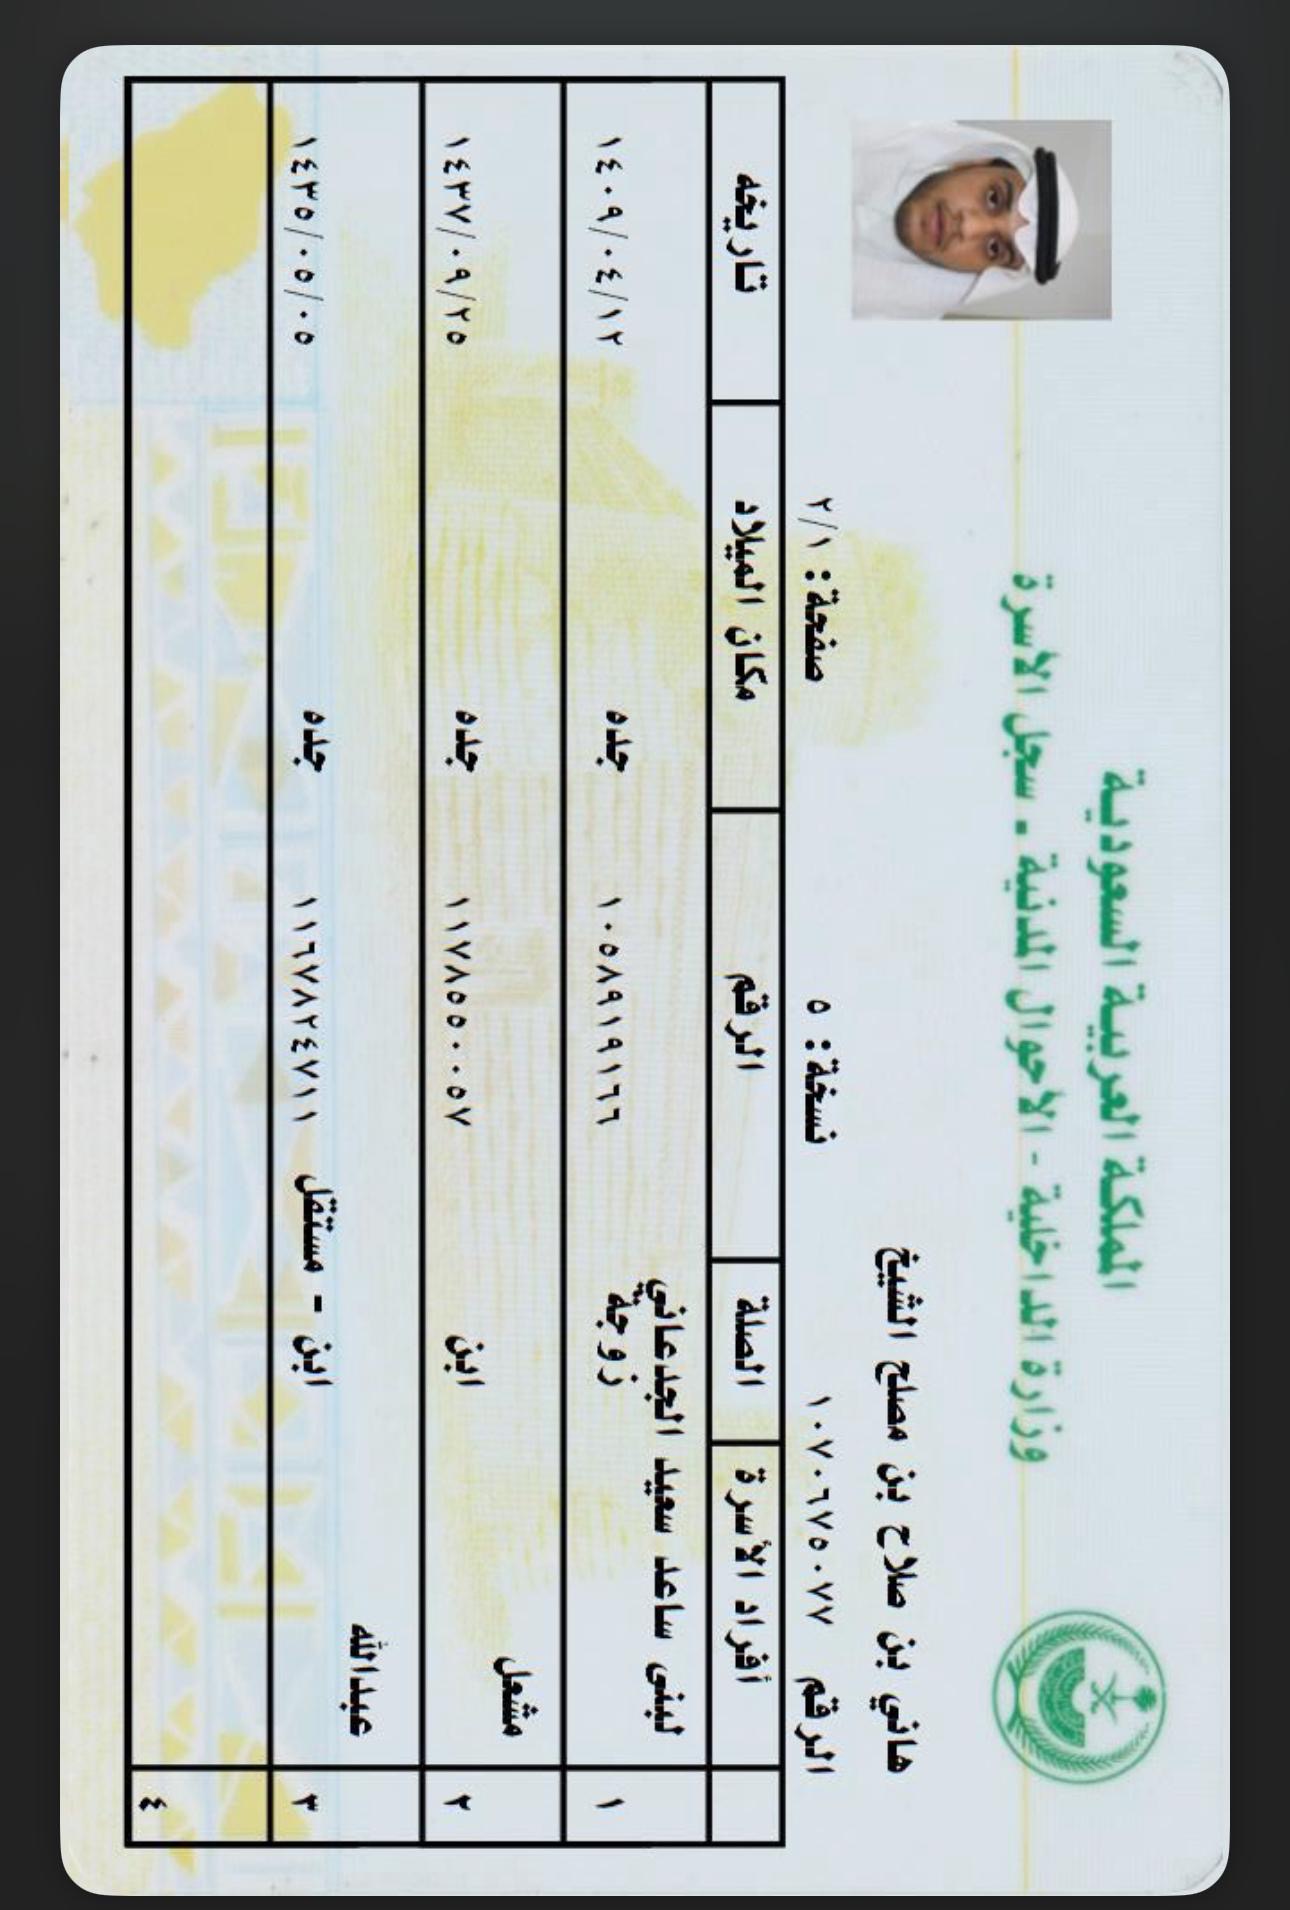 المملكة العربية السعودية
وزارة الداخلية - الأحوال المدنية - سجل الأسرة
هاني بن صلاح بن مصلح الشيخ
الرقم ١٠٧٠٦٧٥٠٧٧ نسخة: ٥ صفحة: ٢/١
أفراد الأسرة الصلة الرقم مكان الميلاد تاريخه
١ لبنى ساعد سعيد الجدعاني زوجة ١٠٥٨٩١٩١٦٦ جده ١٤٠٩/٠٤/١٢
٢ مشعل ابن ١١٧٨٥٥٠٠٥٧ جده ١٤٣٧/٠٩/٢٥
٣ عبدالله ابن - مستقل ١١٦٧٨٢٤٧١١ جده ١٤٣٥/٠٥/٠٥
٤